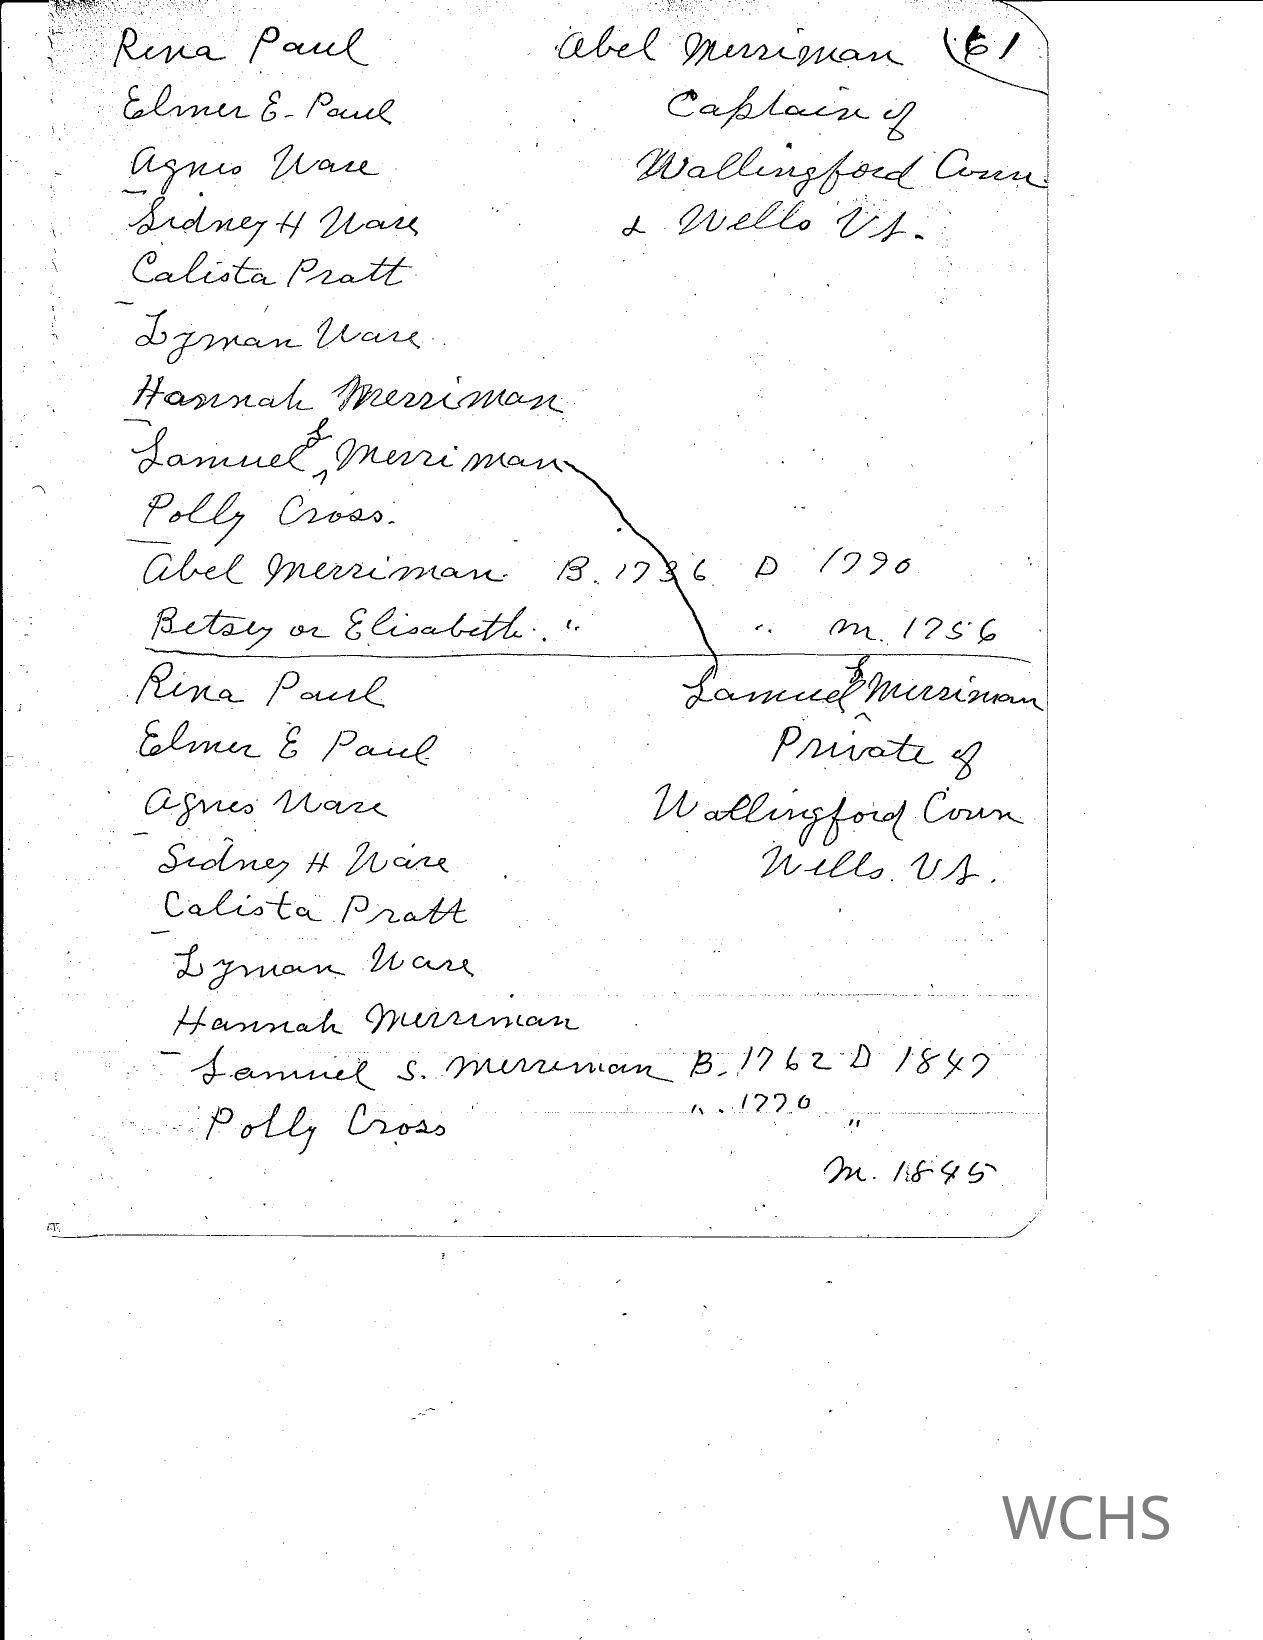 Rena Paul Abel Merriman 61
Elmer E. Paul Captain of
Agnes Ware Wallingford Conn
Sidney H Ware & Wells Vt.
Calista Pratt
Lyman Ware
Hannah Merriman
Samuel S Merriman
Polly Cross.
Abel Merriman B. 1736 D 1790
Betsey or Elisabeth. " " m. 1756
Rena Paul Samuel S Merriman
Elmer E Paul Private of
Agnes Ware Wallingford Conn
Sidney H Ware Wells. Vt.
Calista Pratt
Lyman Ware
Hannah Merriman
Samuel S. Merriman B. 1762 D 1847
Polly Cross " . 1770 "
m. 1845
WCHS